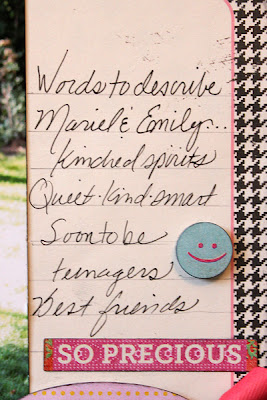 Words to describe
Mariel & Emily...
Kindred spirits
Quiet. Kind. smart
Soon to be
teenagers
Best friends
SO PRECIOUS